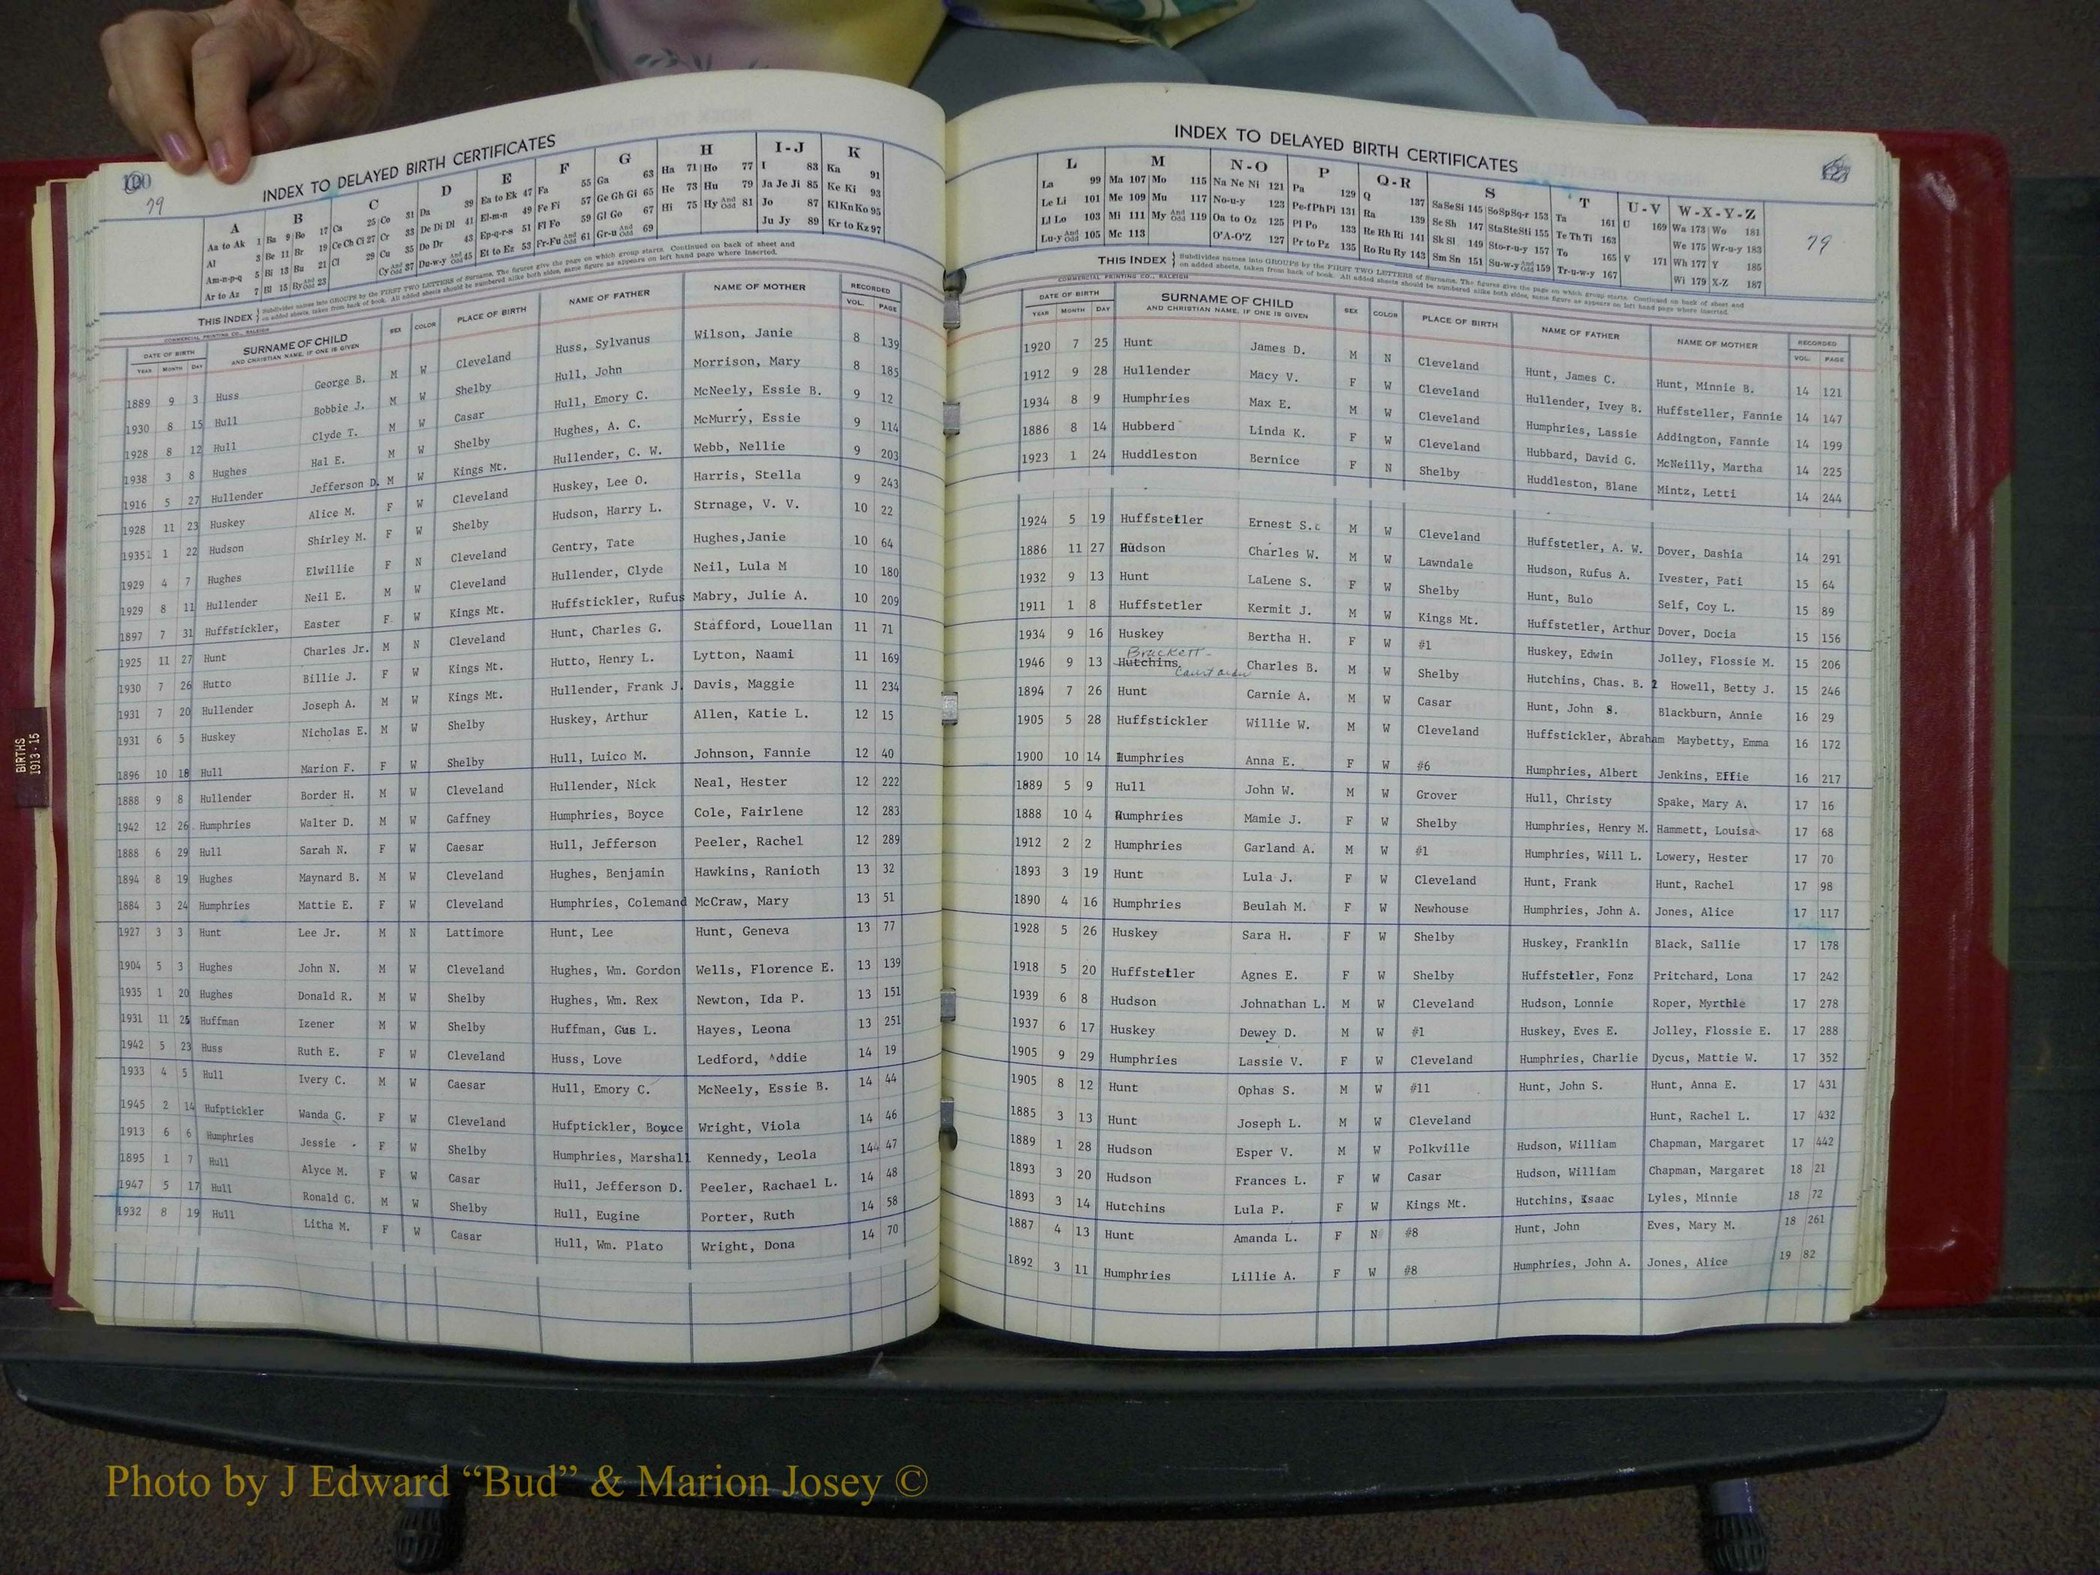 79
INDEX TO DELAYED BIRTH CERTIFICATES
A B C D E F G H I-J K
Aa to Ak 1 Ba 9 Bo 17 Ca 25 Co 31 Da 39 Ea to Ek 47 Fa 55 Ga 63 Ha 71 Ho 77 I 83 Ka 91
Al 3 Be 11 Br 19 Ce Ch Ci 27 Cr 33 De Di Dl 41 El-m-n 49 Fe Fi 57 Ge Gh Gi 65 He 73 Hu 79 Ja Je Ji 85 Ke Ki 93
Am-n-p-q 5 Bi 13 Bu 21 Cl 29 Cu 35 Do Dr 43 Ep-q-r-s 51 Fl Fo 59 Gl Go 67 Hi 75 Hy And Odd 81 Jo 87 Kl Kn Ko 95
Ar to Az 7 Bl 15 By And Odd 23 Cy And Odd 37 Du-w-y And Odd 45 Et to Ez 53 Fr-Fu And Odd 61 Gr-u And Odd 69 Ju Jy 89 Kr to Kz 97
THIS INDEX } Subdivides names into GROUPS by the FIRST TWO LETTERS of Surname. The figures give the page on which group starts. Continued on back of sheet and
on added sheets, taken from back of book. All added sheets should be numbered alike both sides, same figure as appears on left hand page where inserted.
COMMERCIAL PRINTING CO., RALEIGH
DATE OF BIRTH SURNAME OF CHILD SEX COLOR PLACE OF BIRTH NAME OF FATHER NAME OF MOTHER RECORDED
YEAR MONTH DAY AND CHRISTIAN NAME, IF ONE IS GIVEN VOL. PAGE
1889 9 3 Huss George B. M W Cleveland Huss, Sylvanus Wilson, Janie 8 139
1930 8 15 Hull Bobbie J. M W Shelby Hull, John Morrison, Mary 8 185
1928 8 12 Hull Clyde T. M W Casar Hull, Emory C. McNeely, Essie B. 9 12
1938 3 8 Hughes Hal E. M W Shelby Hughes, A. C. McMurry, Essie 9 114
1916 5 27 Hullender Jefferson D. M W Kings Mt. Hullender, C. W. Webb, Nellie 9 203
1928 11 23 Huskey Alice M. F W Cleveland Huskey, Lee O. Harris, Stella 9 243
1935 1 22 Hudson Shirley M. F W Shelby Hudson, Harry L. Strnage, V. V. 10 22
1929 4 7 Hughes Elwillie F N Cleveland Gentry, Tate Hughes,Janie 10 64
1929 8 11 Hullender Neil E. M W Cleveland Hullender, Clyde Neil, Lula M 10 180
1897 7 31 Huffstickler, Easter F W Kings Mt. Huffstickler, Rufus Mabry, Julie A. 10 209
1925 11 27 Hunt Charles Jr. M N Cleveland Hunt, Charles G. Stafford, Louellan 11 71
1930 7 26 Hutto Billie J. F W Kings Mt. Hutto, Henry L. Lytton, Naami 11 169
1931 7 20 Hullender Joseph A. M W Kings Mt. Hullender, Frank J. Davis, Maggie 11 234
1931 6 5 Huskey Nicholas E. M W Shelby Huskey, Arthur Allen, Katie L. 12 15
1896 10 18 Hull Marion F. F W Shelby Hull, Luico M. Johnson, Fannie 12 40
1888 9 8 Hullender Border H. M W Cleveland Hullender, Nick Neal, Hester 12 222
1942 12 26 Humphries Walter D. M W Gaffney Humphries, Boyce Cole, Fairlene 12 283
1888 6 29 Hull Sarah N. F W Caesar Hull, Jefferson Peeler, Rachel 12 289
1894 8 19 Hughes Maynard B. M W Cleveland Hughes, Benjamin Hawkins, Ranioth 13 32
1884 3 24 Humphries Mattie E. F W Cleveland Humphries, Colemand McCraw, Mary 13 51
1927 3 3 Hunt Lee Jr. M N Lattimore Hunt, Lee Hunt, Geneva 13 77
1904 5 3 Hughes John N. M W Cleveland Hughes, Wm. Gordon Wells, Florence E. 13 139
1935 1 20 Hughes Donald R. M W Shelby Hughes, Wm. Rex Newton, Ida P. 13 151
1931 11 25 Huffman Izener M W Shelby Huffman, Gus L. Hayes, Leona 13 251
1942 5 23 Huss Ruth E. F W Cleveland Huss, Love Ledford, Addie 14 19
1933 4 5 Hull Ivery C. M W Caesar Hull, Emory C. McNeely, Essie B. 14 44
1945 2 14 Hufptickler Wanda G. F W Cleveland Hufptickler, Boyce Wright, Viola 14 46
1913 6 6 Humphries Jessie F W Shelby Humphries, Marshall Kennedy, Leola 144 47
1895 1 7 Hull Alyce M. F W Casar Hull, Jefferson D. Peeler, Rachael L. 14 48
1947 5 17 Hull Ronald G. M W Shelby Hull, Eugine Porter, Ruth 14 58
1932 8 19 Hull Litha M. F W Casar Hull, Wm. Plato Wright, Dona 14 70
INDEX TO DELAYED BIRTH CERTIFICATES
79
L M N-O P Q-R S T U-V W-X-Y-Z
La 99 Ma 107 Mo 115 Na Ne Ni 121 Pa 129 Q 137 Sa Se Si 145 So Sp Sq-r 153 Ta 161 U 169 Wa 173 Wo 181
Le Li 101 Me 109 Mu 117 No-u-y 123 Pe-f Ph Pi 131 Ra 139 Sc Sh 147 Sta Ste Sti 155 Te Th Ti 163 We 175 Wr-u-y 183
Ll Lo 103 Mi 111 My And Odd 119 Oa to Oz 125 Pl Po 133 Re Rh Ri 141 Sk Sl 149 Sto-r-u-y 157 To 165 V 171 Wh 177 Y 185
Lu-y And Odd 105 Mc 113 O'A-O'Z 127 Pr to Pz 135 Ro Ru Ry 143 Sm Sn 151 Su-w-y And Odd 159 Tr-u-w-y 167 Wi 179 X-Z 187
THIS INDEX } Subdivides names into GROUPS by the FIRST TWO LETTERS of Surname. The figures give the page on which group starts. Continued on back of sheet and
on added sheets, taken from back of book. All added sheets should be numbered alike both sides, same figure as appears on left hand page where inserted.
COMMERCIAL PRINTING CO., RALEIGH
DATE OF BIRTH SURNAME OF CHILD SEX COLOR PLACE OF BIRTH NAME OF FATHER NAME OF MOTHER RECORDED
YEAR MONTH DAY AND CHRISTIAN NAME, IF ONE IS GIVEN VOL. PAGE
1920 7 25 Hunt James D. M N Cleveland Hunt, James C. Hunt, Minnie B. 14 121
1912 9 28 Hullender Macy V. F W Cleveland Hullender, Ivey B. Huffsteller, Fannie 14 147
1934 8 9 Humphries Max E. M W Cleveland Humphries, Lassie Addington, Fannie 14 199
1886 8 14 Hubberd Linda K. F W Cleveland Hubbard, David G. McNeilly, Martha 14 225
1923 1 24 Huddleston Bernice F N Shelby Huddleston, Blane Mintz, Letti 14 244
1924 5 19 Huffstetler Ernest S. M W Cleveland Huffstetler, A. W. Dover, Dashia 14 291
1886 11 27 Hudson Charles W. M W Lawndale Hudson, Rufus A. Ivester, Pati 15 64
1932 9 13 Hunt LaLene S. F W Shelby Hunt, Bulo Self, Coy L. 15 89
1911 1 8 Huffstetler Kermit J. M W Kings Mt. Huffstetler, Arthur Dover, Docia 15 156
1934 9 16 Huskey Bertha H. F W #1 Huskey, Edwin Jolley, Flossie M. 15 206
Brackett
1946 9 13 Hutchins Charles B. M W Shelby Hutchins, Chas. B. Howell, Betty J. 15 246
Court order
1894 7 26 Hunt Carnie A. M W Casar Hunt, John S. Blackburn, Annie 16 29
1905 5 28 Huffstickler Willie W. M W Cleveland Huffstickler, Abraham Maybetty, Emma 16 172
1900 10 14 Humphries Anna E. F W #6 Humphries, Albert Jenkins, Effie 16 217
1889 5 9 Hull John W. M W Grover Hull, Christy Spake, Mary A. 17 16
1888 10 4 Humphries Mamie J. F W Shelby Humphries, Henry M. Hammett, Louisa 17 68
1912 2 2 Humphries Garland A. M W #1 Humphries, Will L. Lowery, Hester 17 70
1893 3 19 Hunt Lula J. F W Cleveland Hunt, Frank Hunt, Rachel 17 98
1890 4 16 Humphries Beulah M. F W Newhouse Humphries, John A. Jones, Alice 17 117
1928 5 26 Huskey Sara H. F W Shelby Huskey, Franklin Black, Sallie 17 178
1918 5 20 Huffstetler Agnes E. F W Shelby Huffstetler, Fonz Pritchard, Lona 17 242
1939 6 8 Hudson Johnathan L. M W Cleveland Hudson, Lonnie Roper, Myrthie 17 278
1937 6 17 Huskey Dewey D. M W #1 Huskey, Eves E. Jolley, Flossie E. 17 288
1905 9 29 Humphries Lassie V. F W Cleveland Humphries, Charlie Dycus, Mattie W. 17 352
1905 8 12 Hunt Ophas S. M W #11 Hunt, John S. Hunt, Anna E. 17 431
1885 3 13 Hunt Joseph L. M W Cleveland Hunt, Rachel L. 17 432
1889 1 28 Hudson Esper V. M W Polkville Hudson, William Chapman, Margaret 17 442
1893 3 20 Hudson Frances L. F W Casar Hudson, William Chapman, Margaret 18 21
1893 3 14 Hutchins Lula P. F W Kings Mt. Hutchins, Isaac Lyles, Minnie 18 72
1887 4 13 Hunt Amanda L. F N #8 Hunt, John Eves, Mary M. 18 261
1892 3 11 Humphries Lillie A. F W #8 Humphries, John A. Jones, Alice 19 82
BIRTHS
1913-15
Photo by J Edward “Bud” & Marion Josey ©